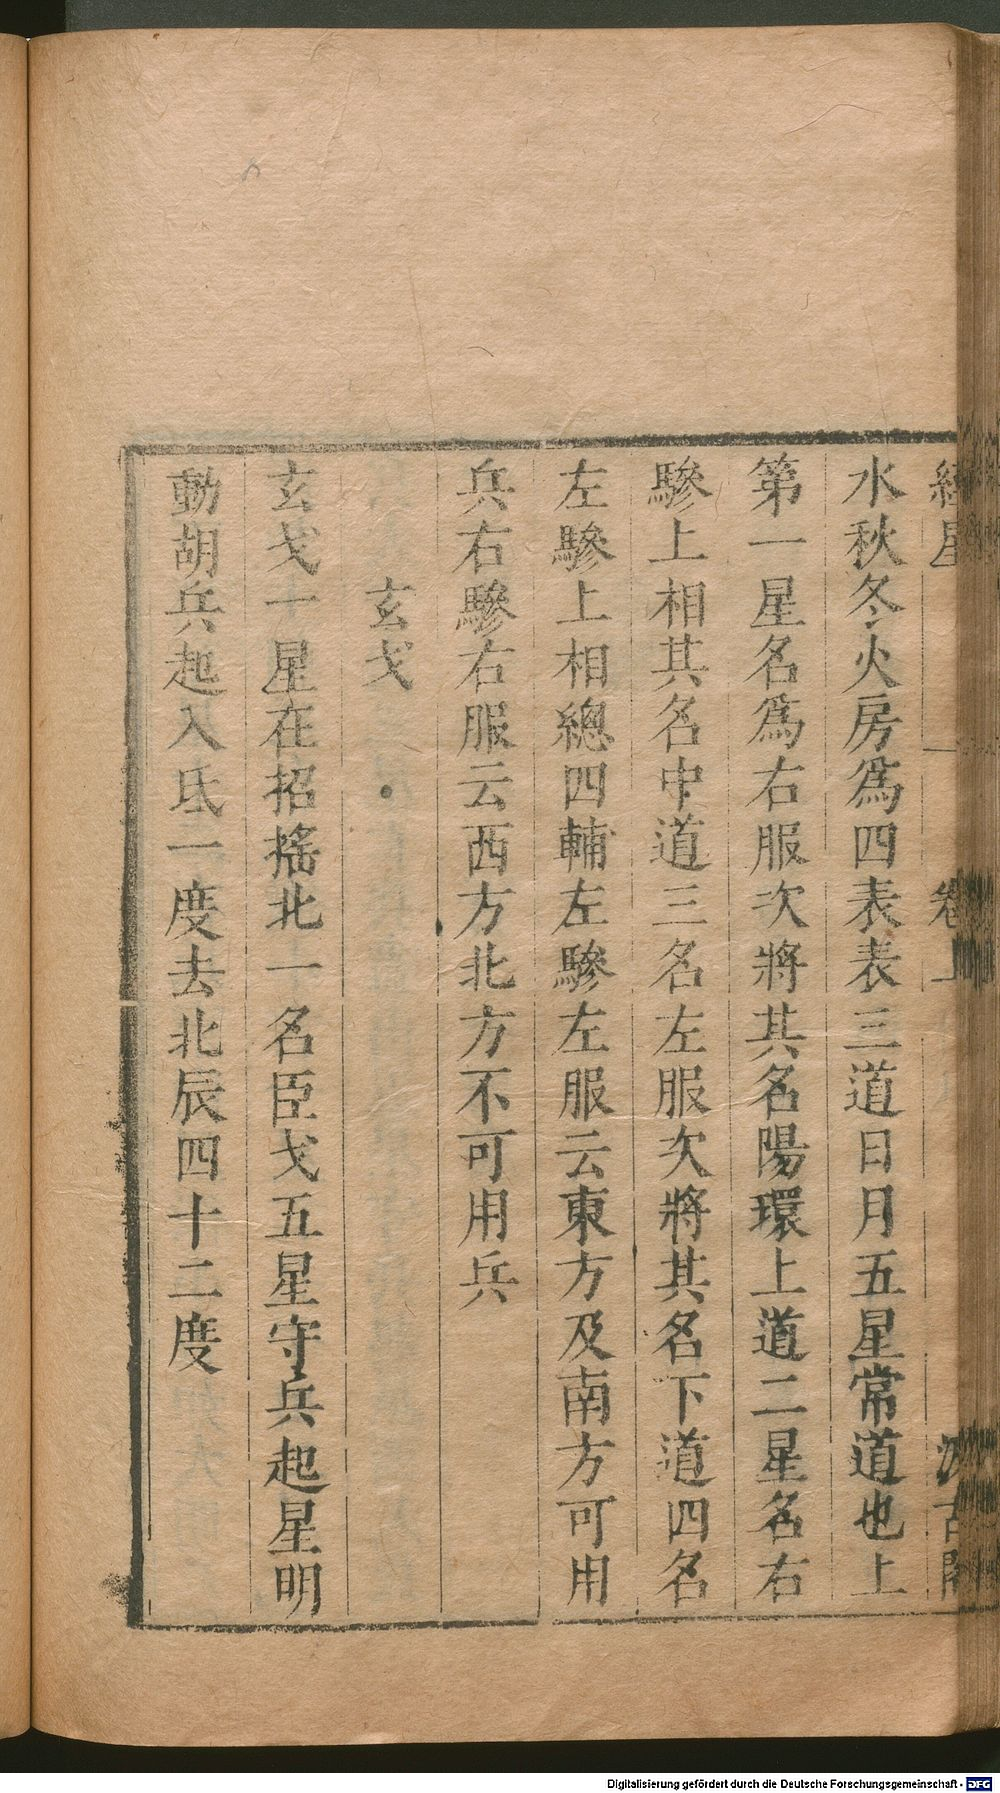 水秋冬火房爲四表表三道日月五星常道也上
第一星名爲右服次將其名陽環上道二星名右
驂上相其名中道三名左服次將其名下道四名
左驂上相總四輔左驂左服云東方及南方可用
兵右驂右服云西方北方不可用兵
玄戈
玄戈一星在招搖北一名臣戈五星守兵起星明
動胡兵起入氐一度去北辰四十二度
Digitalisierung gefördert durch die Deutsche Forschungsgemeinschaft - DFG